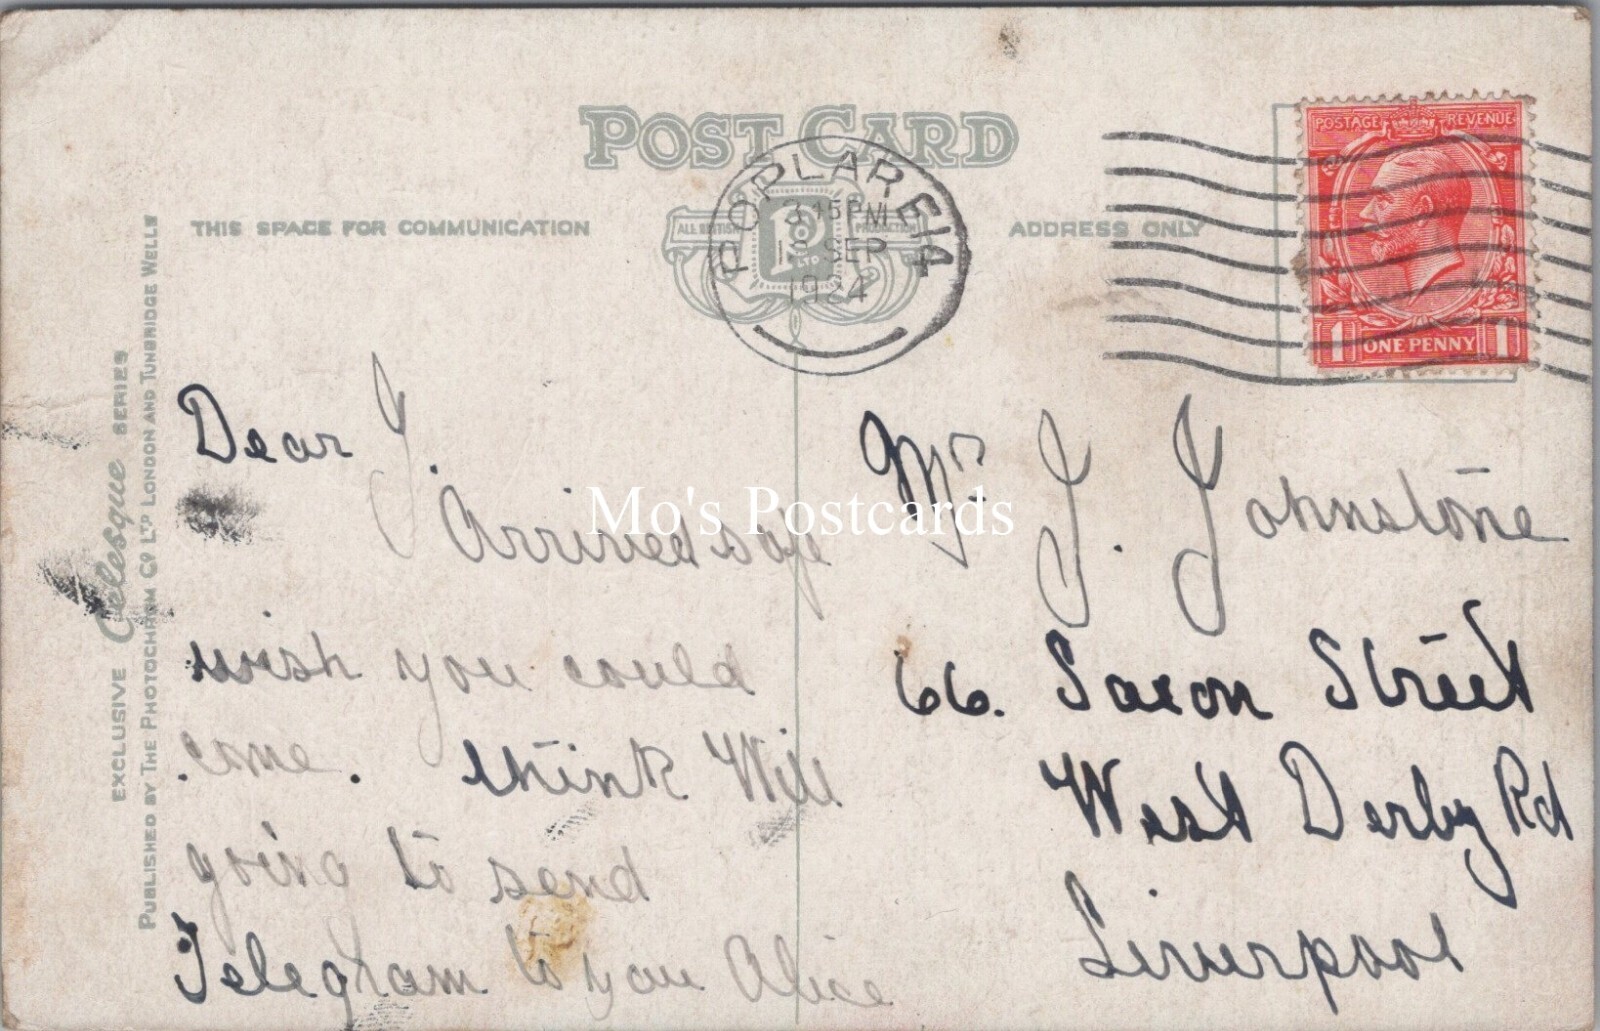 POST CARD
THIS SPACE FOR COMMUNICATION
ADDRESS ONLY
ALL BRITISH PRODUCTION
P
LTD
POPLAR E14
3.15 PM
SEP
1924
POSTAGE REVENUE
1 ONE PENNY 1
EXCLUSIVE Celesque SERIES
PUBLISHED BY THE PHOTOCHROM CO LTD LONDON AND TUNBRIDGE WELLS
Dear J.
Arrived safe
wish you could
come. think Will
going to send
Telegram to you Alice
Mr J. Johnstone
66. Saxon Street
West Derby Rd
Liverpool
Mo's Postcards